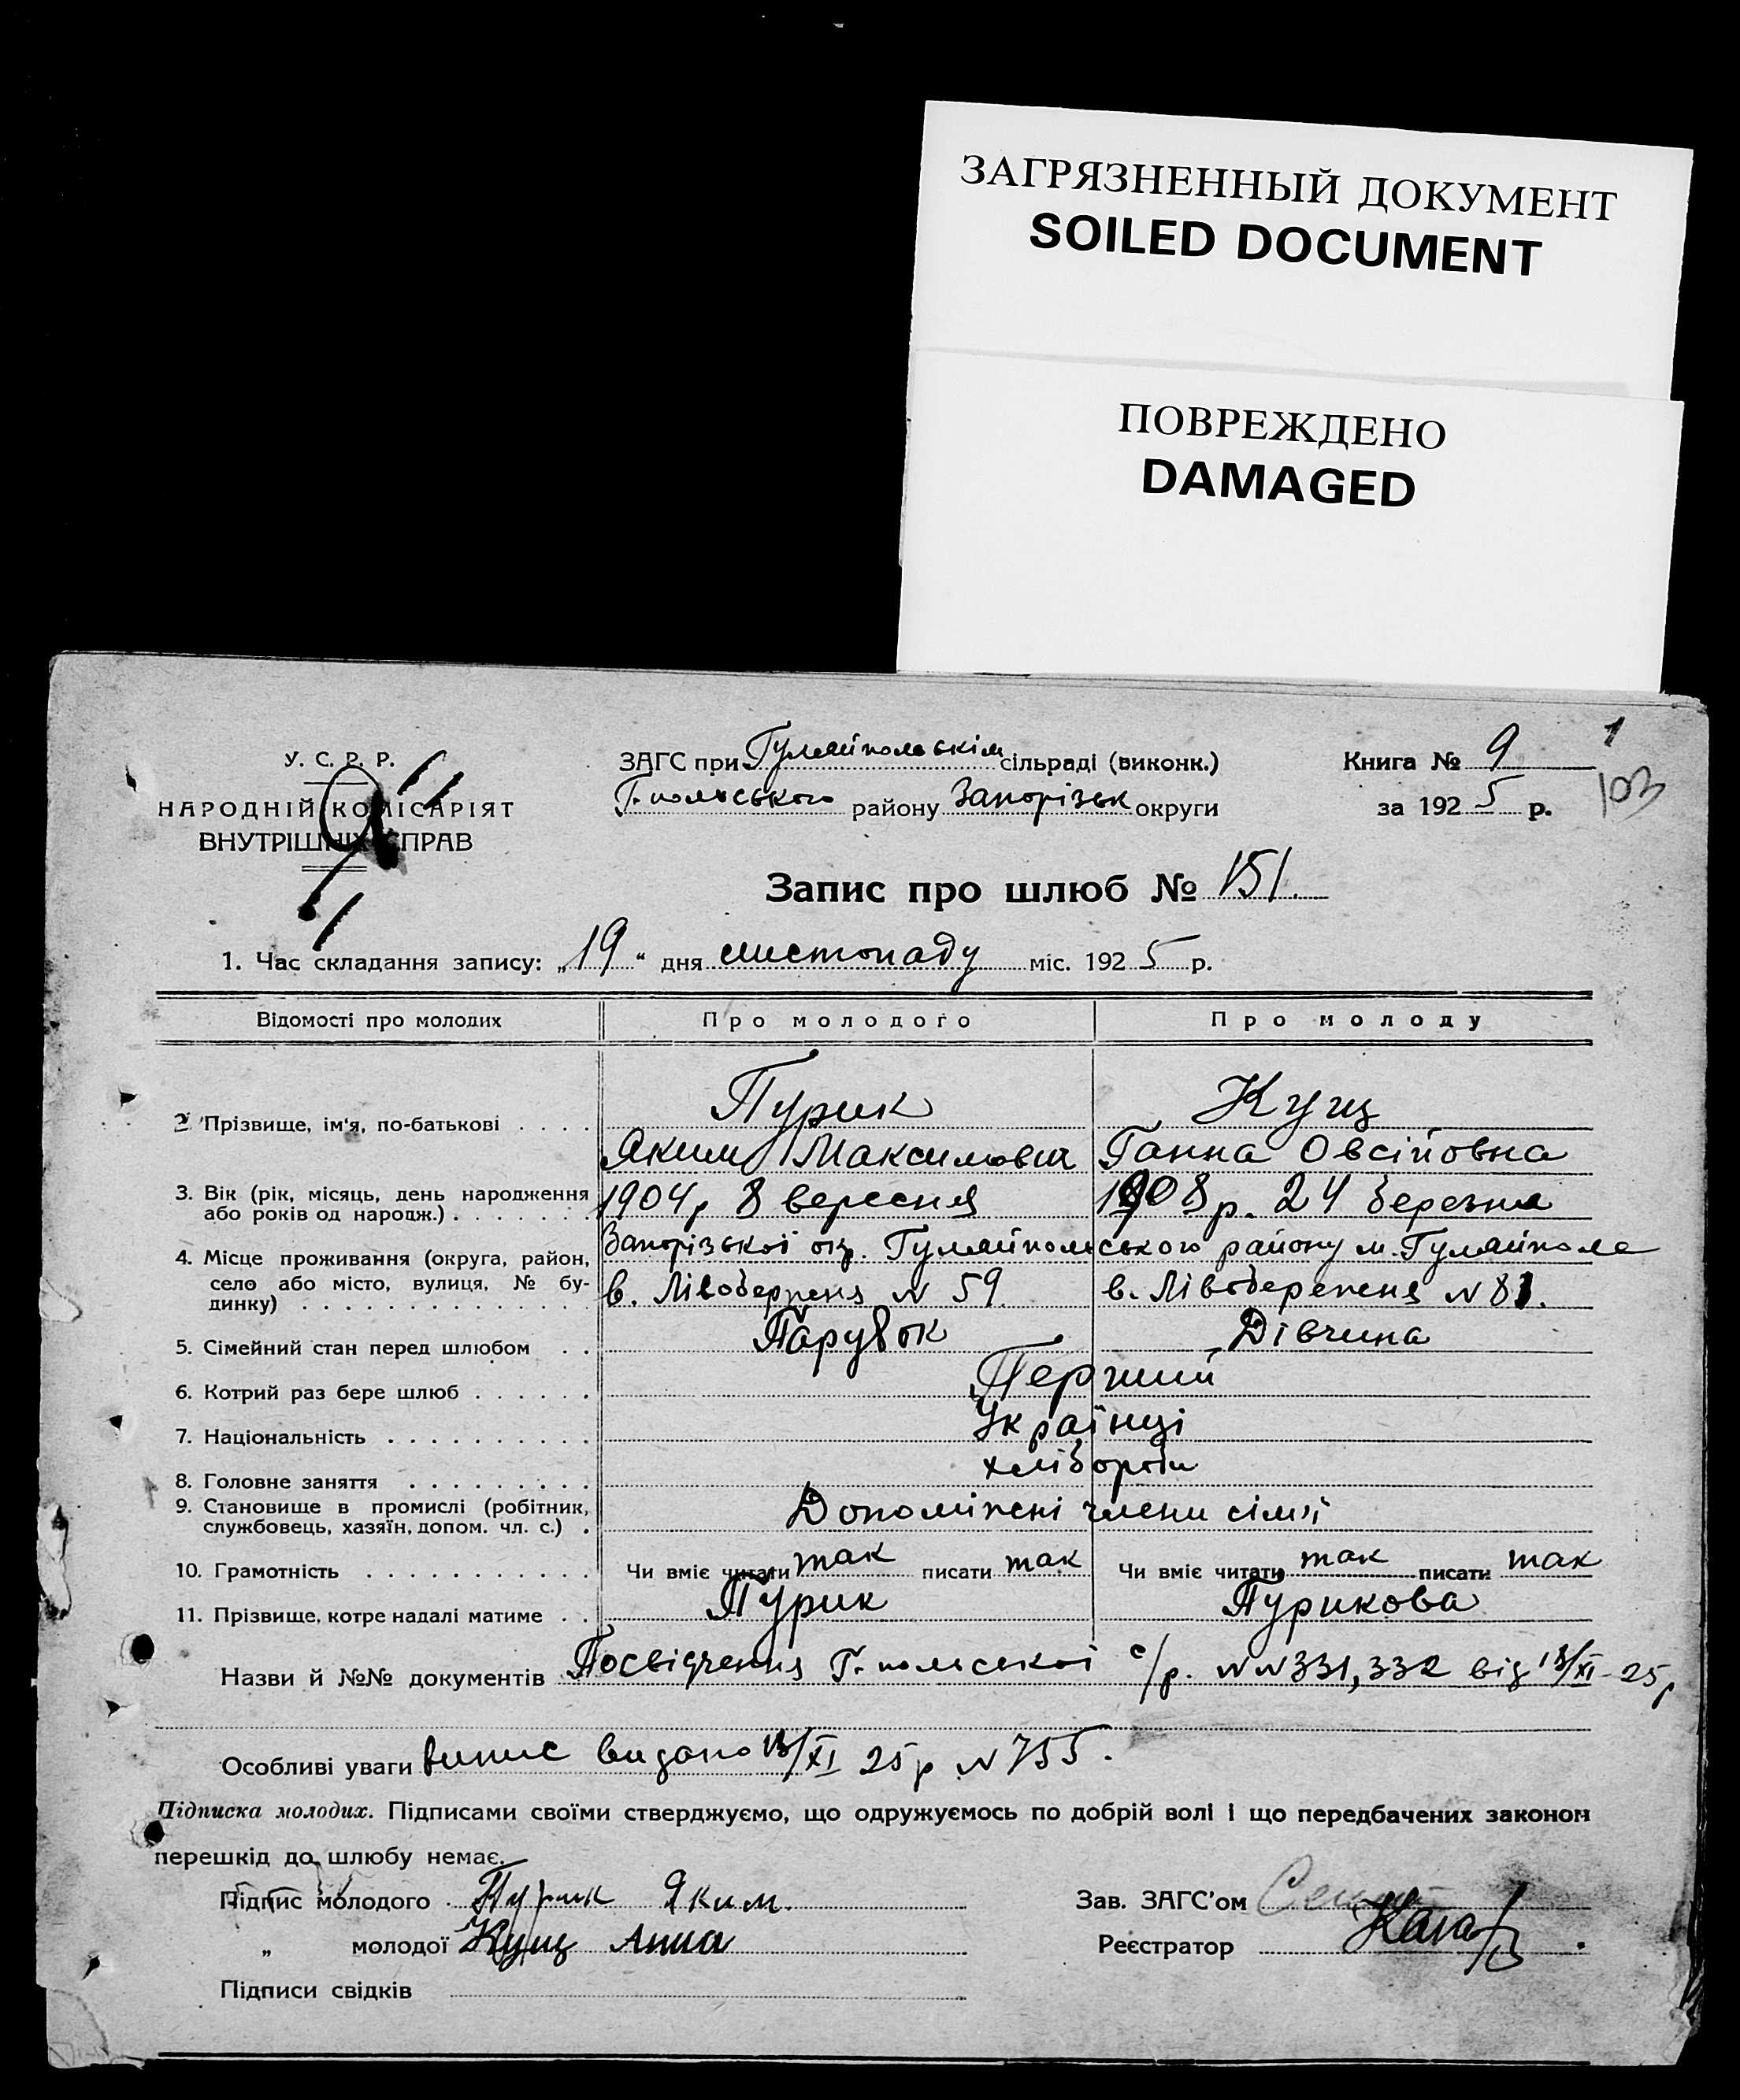 ЗАГРЯЗНЕННЫЙ ДОКУМЕНТ
SOILED DOCUMENT
ПОВРЕЖДЕНО
DAMAGED
1
103
У. С. Р. Р.
НАРОДНІЙ КОМІСАРІЯТ
ВНУТРІШНІХ СПРАВ
ЗАГС при Гуляйпольскім сільраді (виконк.)
Г. польського району Запорізьк округи
Книга № 9
за 1925 р.
Запис про шлюб № 151.
1. Час складання запису: „19“ дня листопаду міс. 1925 р.
Відомості про молодих Про молодого Про молоду
2 Прізвище, ім'я, по-батькові . . . . Пурик Кущ
Яким Максимович Ганна Овсійовна
3. Вік (рік, місяць, день народження або років од народж.) . . . . . . . 1904р 8 вересня 1908 р. 24 березня
4. Місце проживання (округа, район, село або місто, вулиця, № будинку) . . . . . . . . . . . . . . Запорізькоі окр. Гуляйпольського району м. Гуляйполе
в. Лівобережня N 59. в. Лівобережня N 81.
5. Сімейний стан перед шлюбом . . Парубок Дівчина
6. Котрий раз бере шлюб . . . . . . Перший
7. Національність . . . . . . . . . . Українці
8. Головне заняття . . . . . . . . . хлібороби
9. Становище в промислі (робітник, службовець, хазяїн, допом. чл. с.) . Допоміжні члени сім'ї
10. Грамотність . . . . . . . . . . . Чи вміє читати так писати так Чи вміє читати так писати так
11. Прізвище, котре надалі матиме . . Пурик Пурикова
Назви й №№ документів Посвідчення Г. польскоі с/р. NN 331, 332 від 13/XI-25р
Особливі уваги випис видано 13/XI 25р N 755.
Підписка молодих. Підписами своїми стверджуємо, що одружуємось по добрій волі і що передбачених законом
перешкід до шлюбу немає.
Підпис молодого Пурик Яким. Зав. ЗАГС'ом
„ молодої Кущ Анна Реєстратор
Підписи свідків